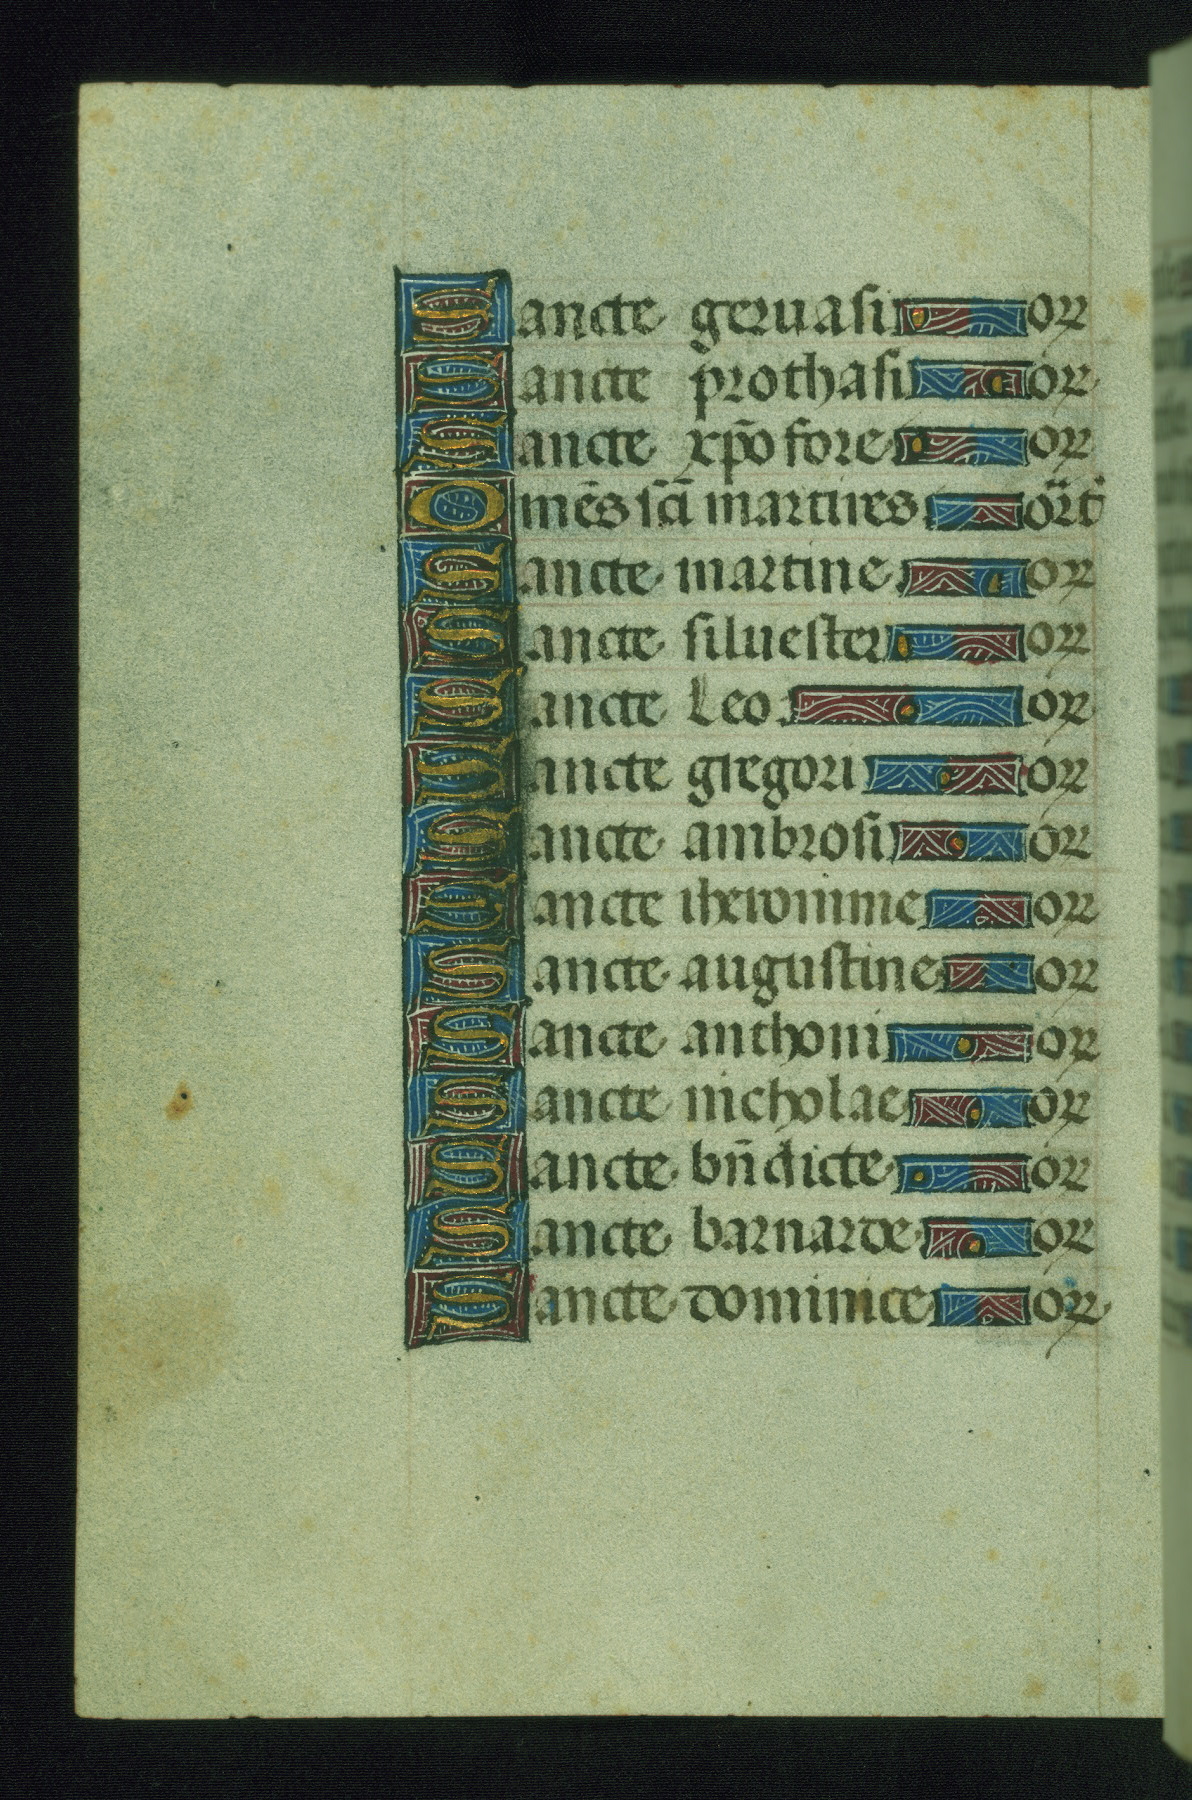 Sancte geruasi or
Sancte prothasi or
Sancte xp̄ofore or
Om̄es sc̄i martires or̄t
Sancte martine or
Sancte siluester or
Sancte Leo or
Sancte gregori or
Sancte ambrosi or
Sancte iheronime or
Sancte augustine or
Sancte anthoni or
Sancte nicholae or
Sancte bn̄dicte or
Sancte barnarde or
Sancte dominice or